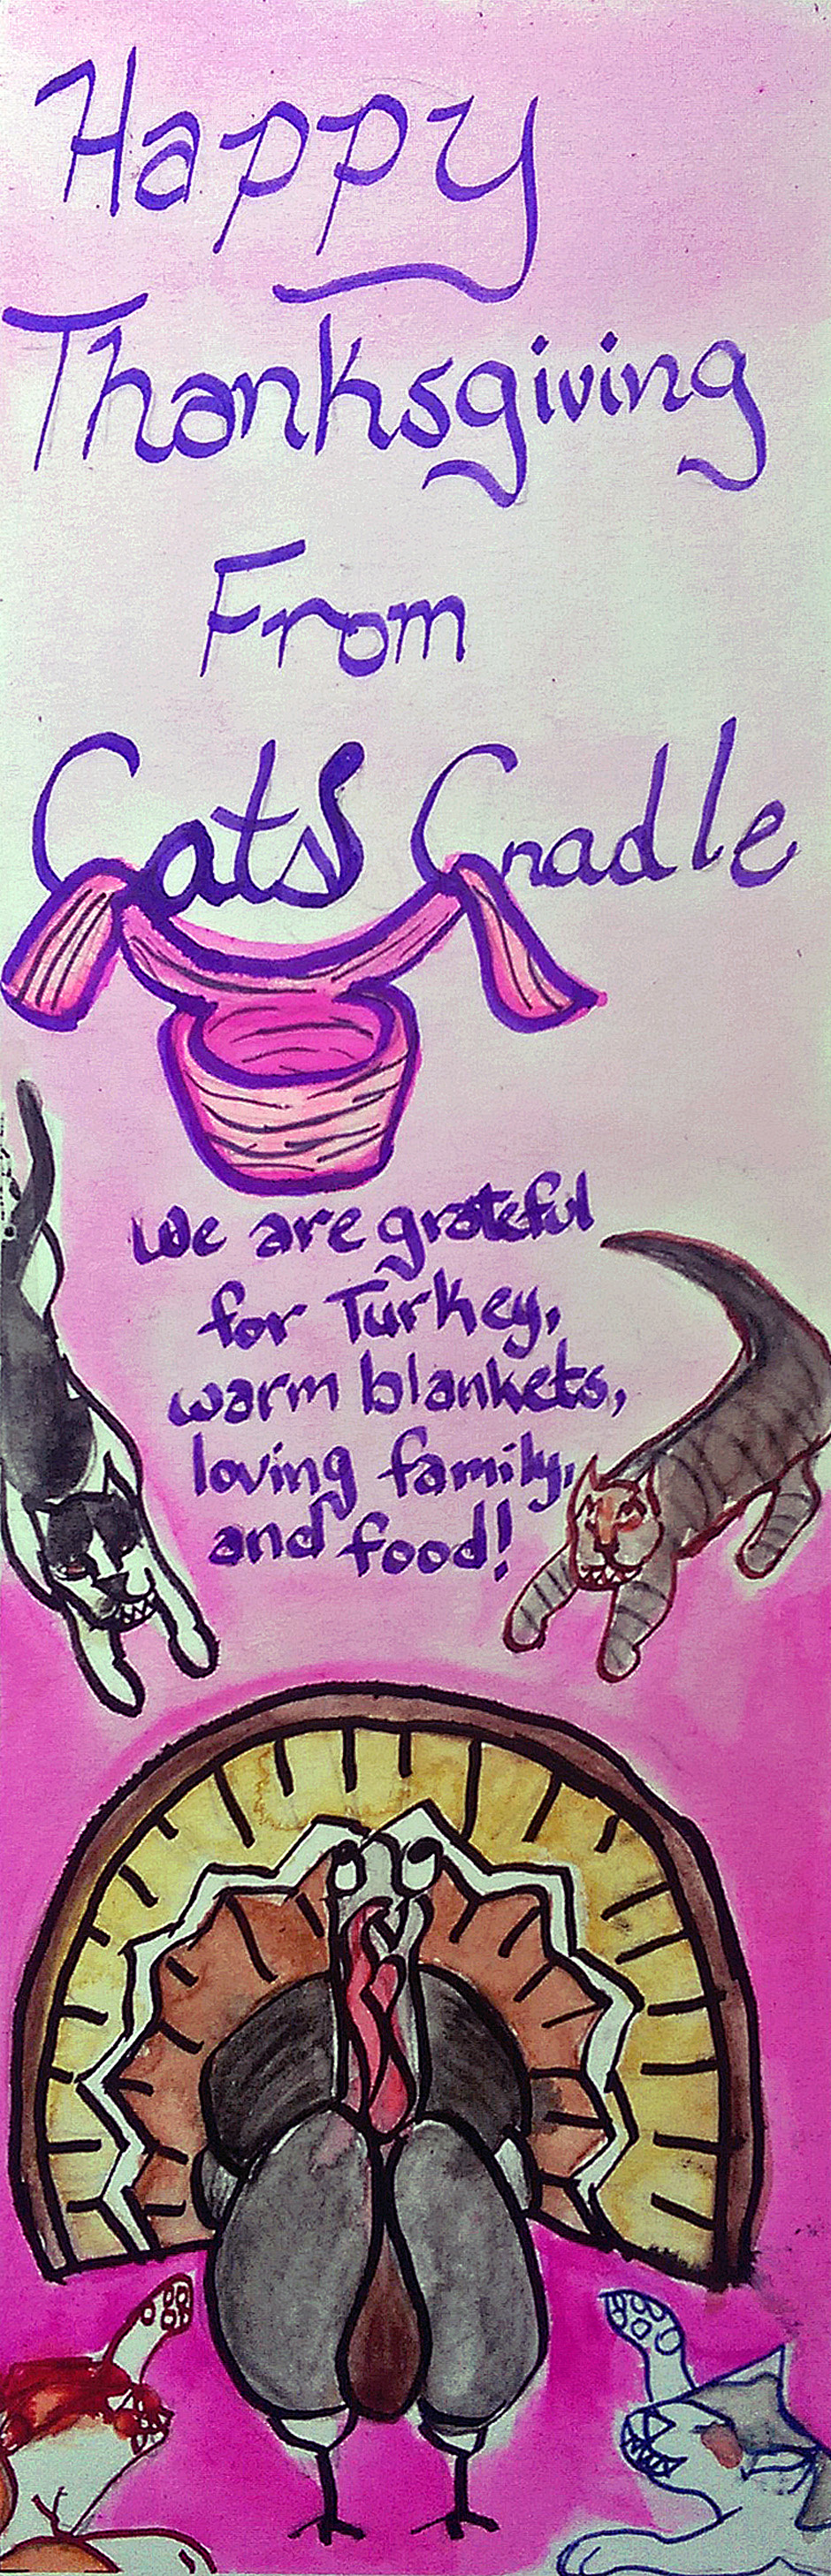 Happy
Thanksgiving
From
Cats Cradle
We are grateful
for Turkey,
warm blankets,
loving family,
and food!